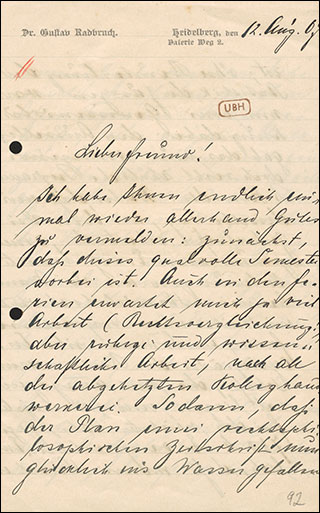 Dr. Gustav Radbruch.
Heidelberg, den 12. Aug. 07
Valerie Weg 2.
UBH
Lieber Freund!
Ich habe Ihnen endlich ein-
mal wieder allerhand Gutes
zu vermelden: zunächst,
daß dieses qualvolle Semester
vorbei ist. Auch in den Fe-
rien erwartet mich ja viel
Arbeit (Rechtsvergleichung!)
aber ruhige und wissen-
schaftliche Arbeit, nach all
der abgehetzten Kolleghand-
werkerei. Sodann, daß
der Plan einer rechtsphi-
losophischen Zeitschrift nun
glücklich ins Wasser gefallen
92